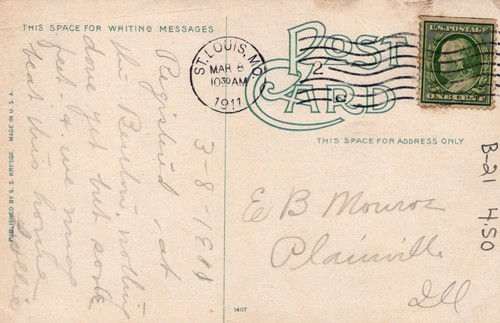 THIS SPACE FOR WRITING MESSAGES
POST
CARD
THIS SPACE FOR ADDRESS ONLY
ST. LOUIS, MO.
MAR 8
1030AM
1911
2
U.S. POSTAGE
ONE CENT
3-8-1911
Registered at
the Burton, nothing
dove yet but some
feet of we may
beat this home
E B Monroe
Plainville
Ill
B-21 4.50
PUBLISHED BY S. S. KRESGE. MADE IN U.S.A.
14117